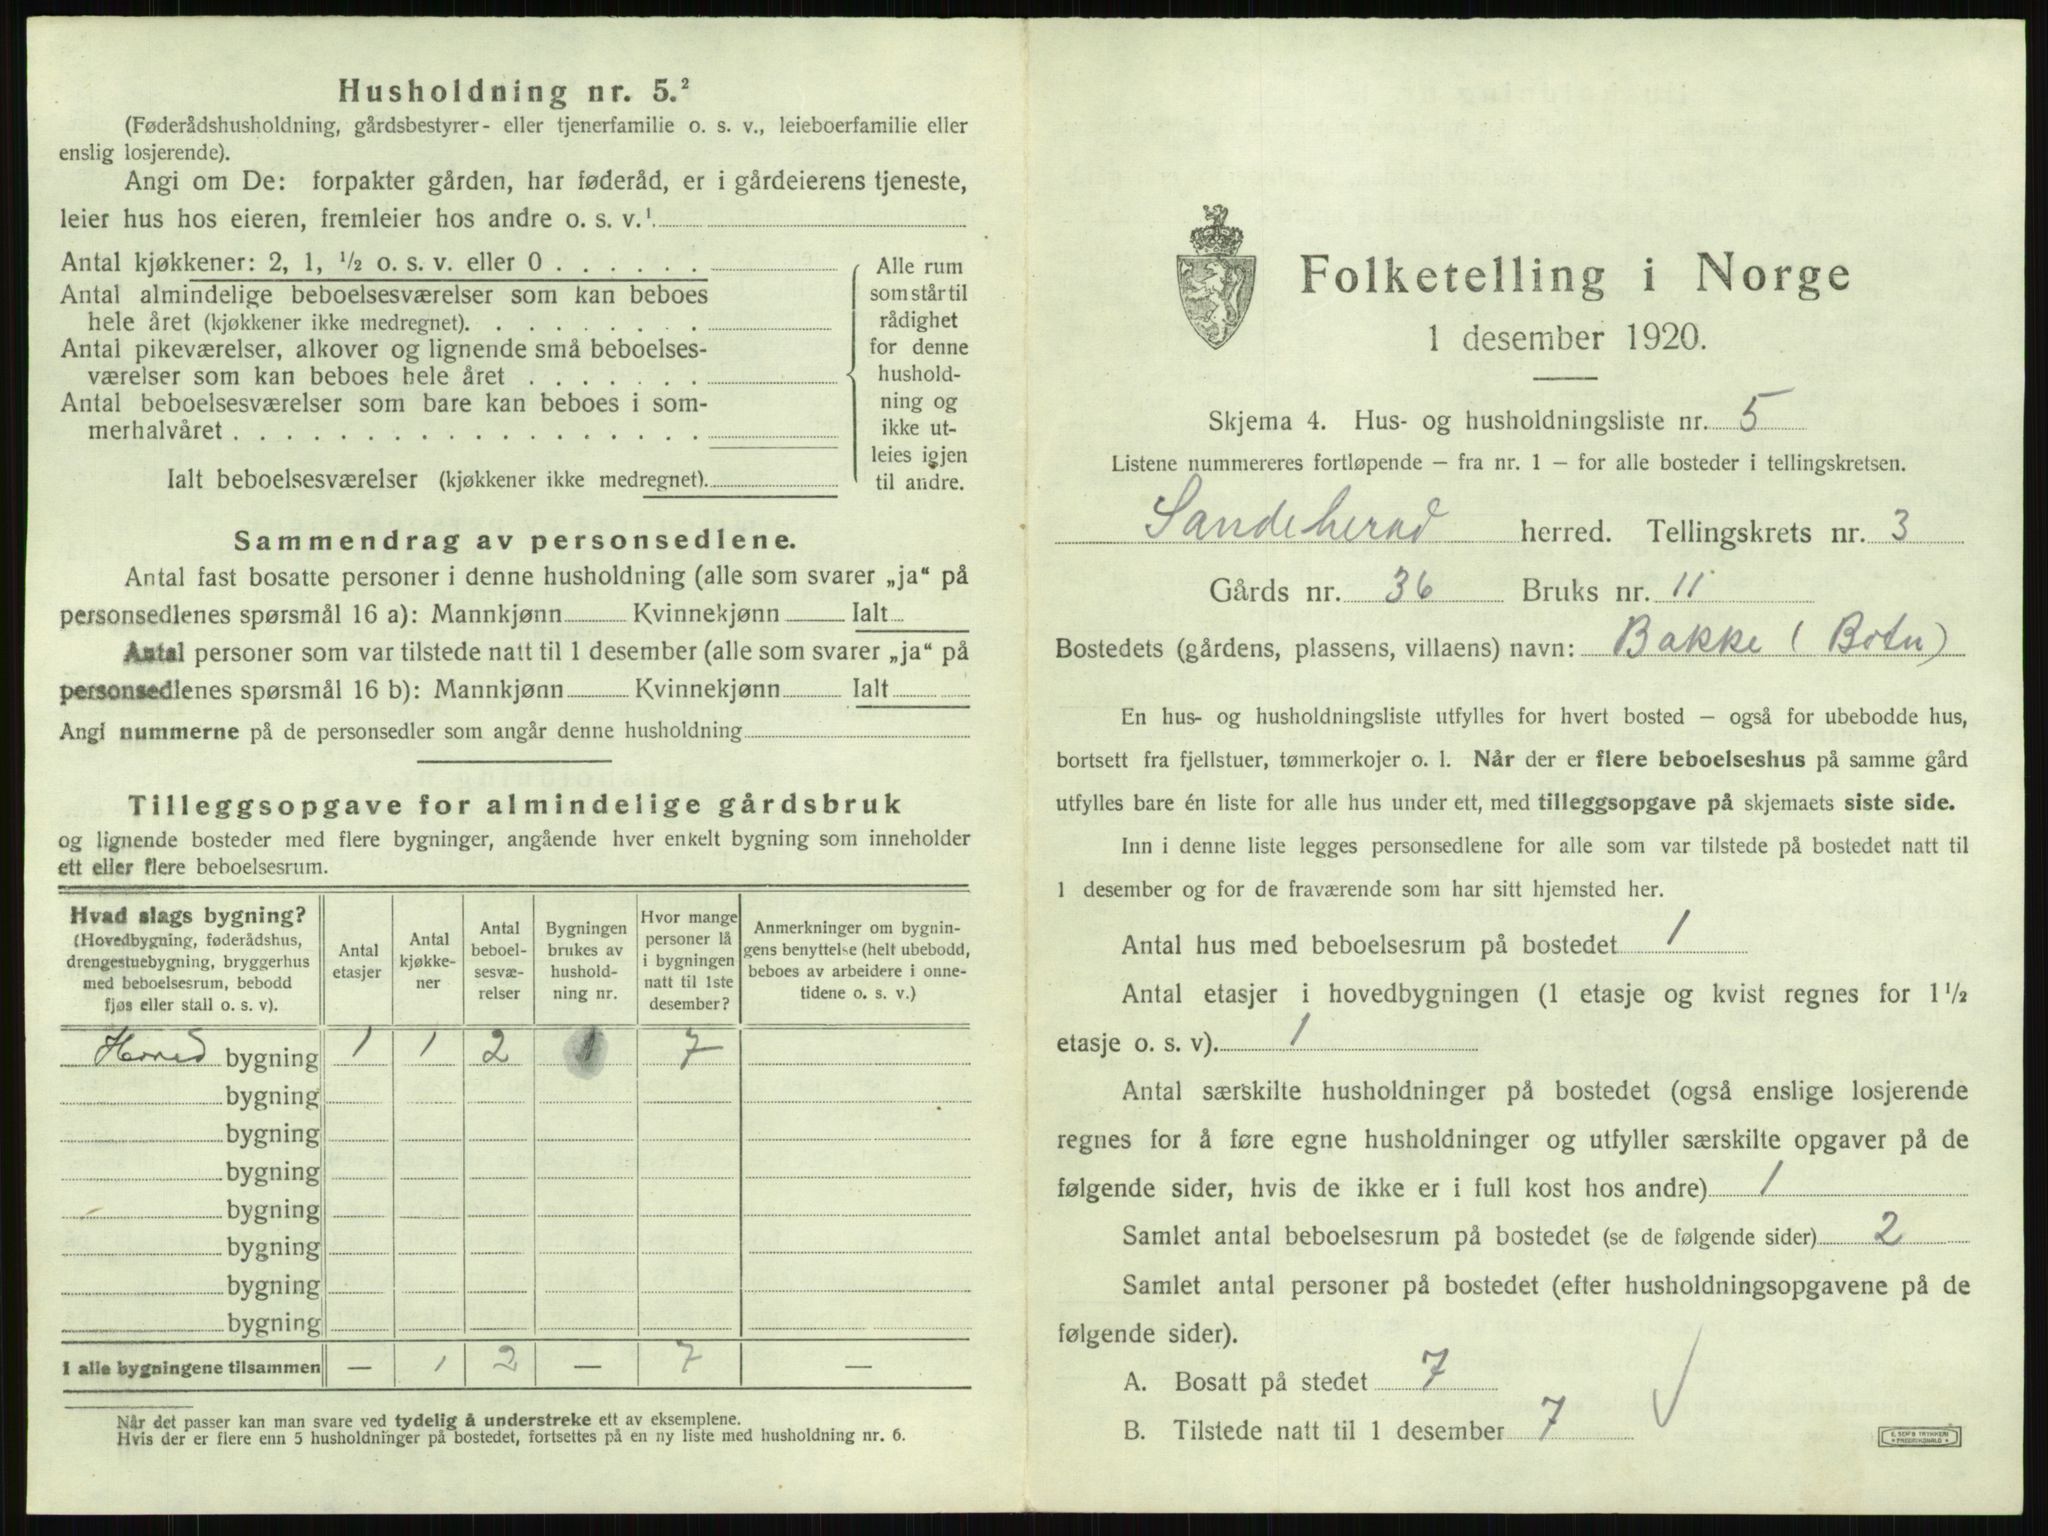 Husholdning nr. 5.²
(Føderådshusholdning, gårdsbestyrer- eller tjenerfamilie o. s. v., leieboerfamilie eller
enslig losjerende).
Angi om De: forpakter gården, har føderåd, er i gårdeierens tjeneste,
leier hus hos eieren, fremleier hos andre o. s. v.¹
Antal kjøkkener: 2, 1, ½ o. s. v. eller 0 . . . . . .
Antal almindelige beboelsesværelser som kan beboes
hele året (kjøkkener ikke medregnet). . . . . . . . .
Antal pikeværelser, alkover og lignende små beboelses-
værelser som kan beboes hele året . . . . . . .
Antal beboelsesværelser som bare kan beboes i som-
merhalvåret . . . . . . . . . . . . . . . . . .
Ialt beboelsesværelser (kjøkkener ikke medregnet).
Alle rum
som står til
rådighet
for denne
hushold-
ning og
ikke ut-
leies igjen
til andre.
Sammendrag av personsedlene.
Antal fast bosatte personer i denne husholdning (alle som svarer „ja“ på
personsedlenes spørsmål 16 a): Mannkjønn Kvinnekjønn Ialt
Antal personer som var tilstede natt til 1 desember (alle som svarer „ja“ på
personsedlenes spørsmål 16 b): Mannkjønn Kvinnekjønn Ialt
Angi nummerne på de personsedler som angår denne husholdning
Tilleggsopgave for almindelige gårdsbruk
og lignende bosteder med flere bygninger, angående hver enkelt bygning som inneholder
ett eller flere beboelsesrum.
Hvad slags bygning?
(Hovedbygning, føderådshus,
drengestuebygning, bryggerhus
med beboelsesrum, bebodd
fjøs eller stall o. s. v).
Antal
etasjer
Antal
kjøkke-
ner
Antal
beboel-
sesvæ-
relser
Bygningen
brukes av
hushold-
ning nr.
Hvor mange
personer lå
i bygningen
natt til 1ste
desember?
Anmerkninger om bygnin-
gens benyttelse (helt ubebodd,
beboes av arbeidere i onne-
tidene o. s. v.)
Hoved bygning 1 1 2 1 7
bygning
bygning
bygning
bygning
bygning
bygning
bygning
I alle bygningene tilsammen — 1 2 — 7 —
Når det passer kan man svare ved tydelig å understreke ett av eksemplene.
Hvis der er flere enn 5 husholdninger på bostedet, fortsettes på en ny liste med husholdning nr. 6.
Folketelling i Norge
1 desember 1920.
Skjema 4. Hus- og husholdningsliste nr. 5
Listene nummereres fortløpende – fra nr. 1 – for alle bosteder i tellingskretsen.
Sandeherad herred. Tellingskrets nr. 3
Gårds nr. 36 Bruks nr. 11
Bostedets (gårdens, plassens, villaens) navn: Bakke (Botn)
En hus- og husholdningsliste utfylles for hvert bosted – også for ubebodde hus,
bortsett fra fjellstuer, tømmerkojer o. l. Når der er flere beboelseshus på samme gård
utfylles bare én liste for alle hus under ett, med tilleggsopgave på skjemaets siste side.
Inn i denne liste legges personsedlene for alle som var tilstede på bostedet natt til
1 desember og for de fraværende som har sitt hjemsted her.
Antal hus med beboelsesrum på bostedet 1
Antal etasjer i hovedbygningen (1 etasje og kvist regnes for 1 ½
etasje o. s. v). 1
Antal særskilte husholdninger på bostedet (også enslige losjerende
regnes for å føre egne husholdninger og utfyller særskilte opgaver på de
følgende sider, hvis de ikke er i full kost hos andre) 1
Samlet antal beboelsesrum på bostedet (se de følgende sider) 2
Samlet antal personer på bostedet (efter husholdningsopgavene på de
følgende sider).
A. Bosatt på stedet 7
B. Tilstede natt til 1 desember 7
E. SEM'S TRYKKERI
FREDRIKSHALD